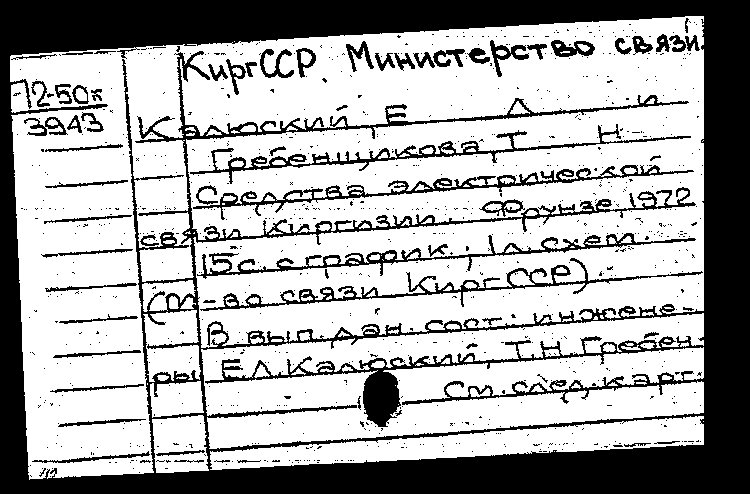 КиргССР. Министерство связи.
72-50к
3943
Калюский, Е Л и
Гребенщикова, Т Н
Средства электрической
связи Киргизии. Фрунзе, 1972
15 с. с график.; 1 л. схем.
(М-во связи КиргССР)
В вып. дан. сост.: инжене-
ры Е.Л. Калюский, Т.Н. Гребен-
См. след. карт.